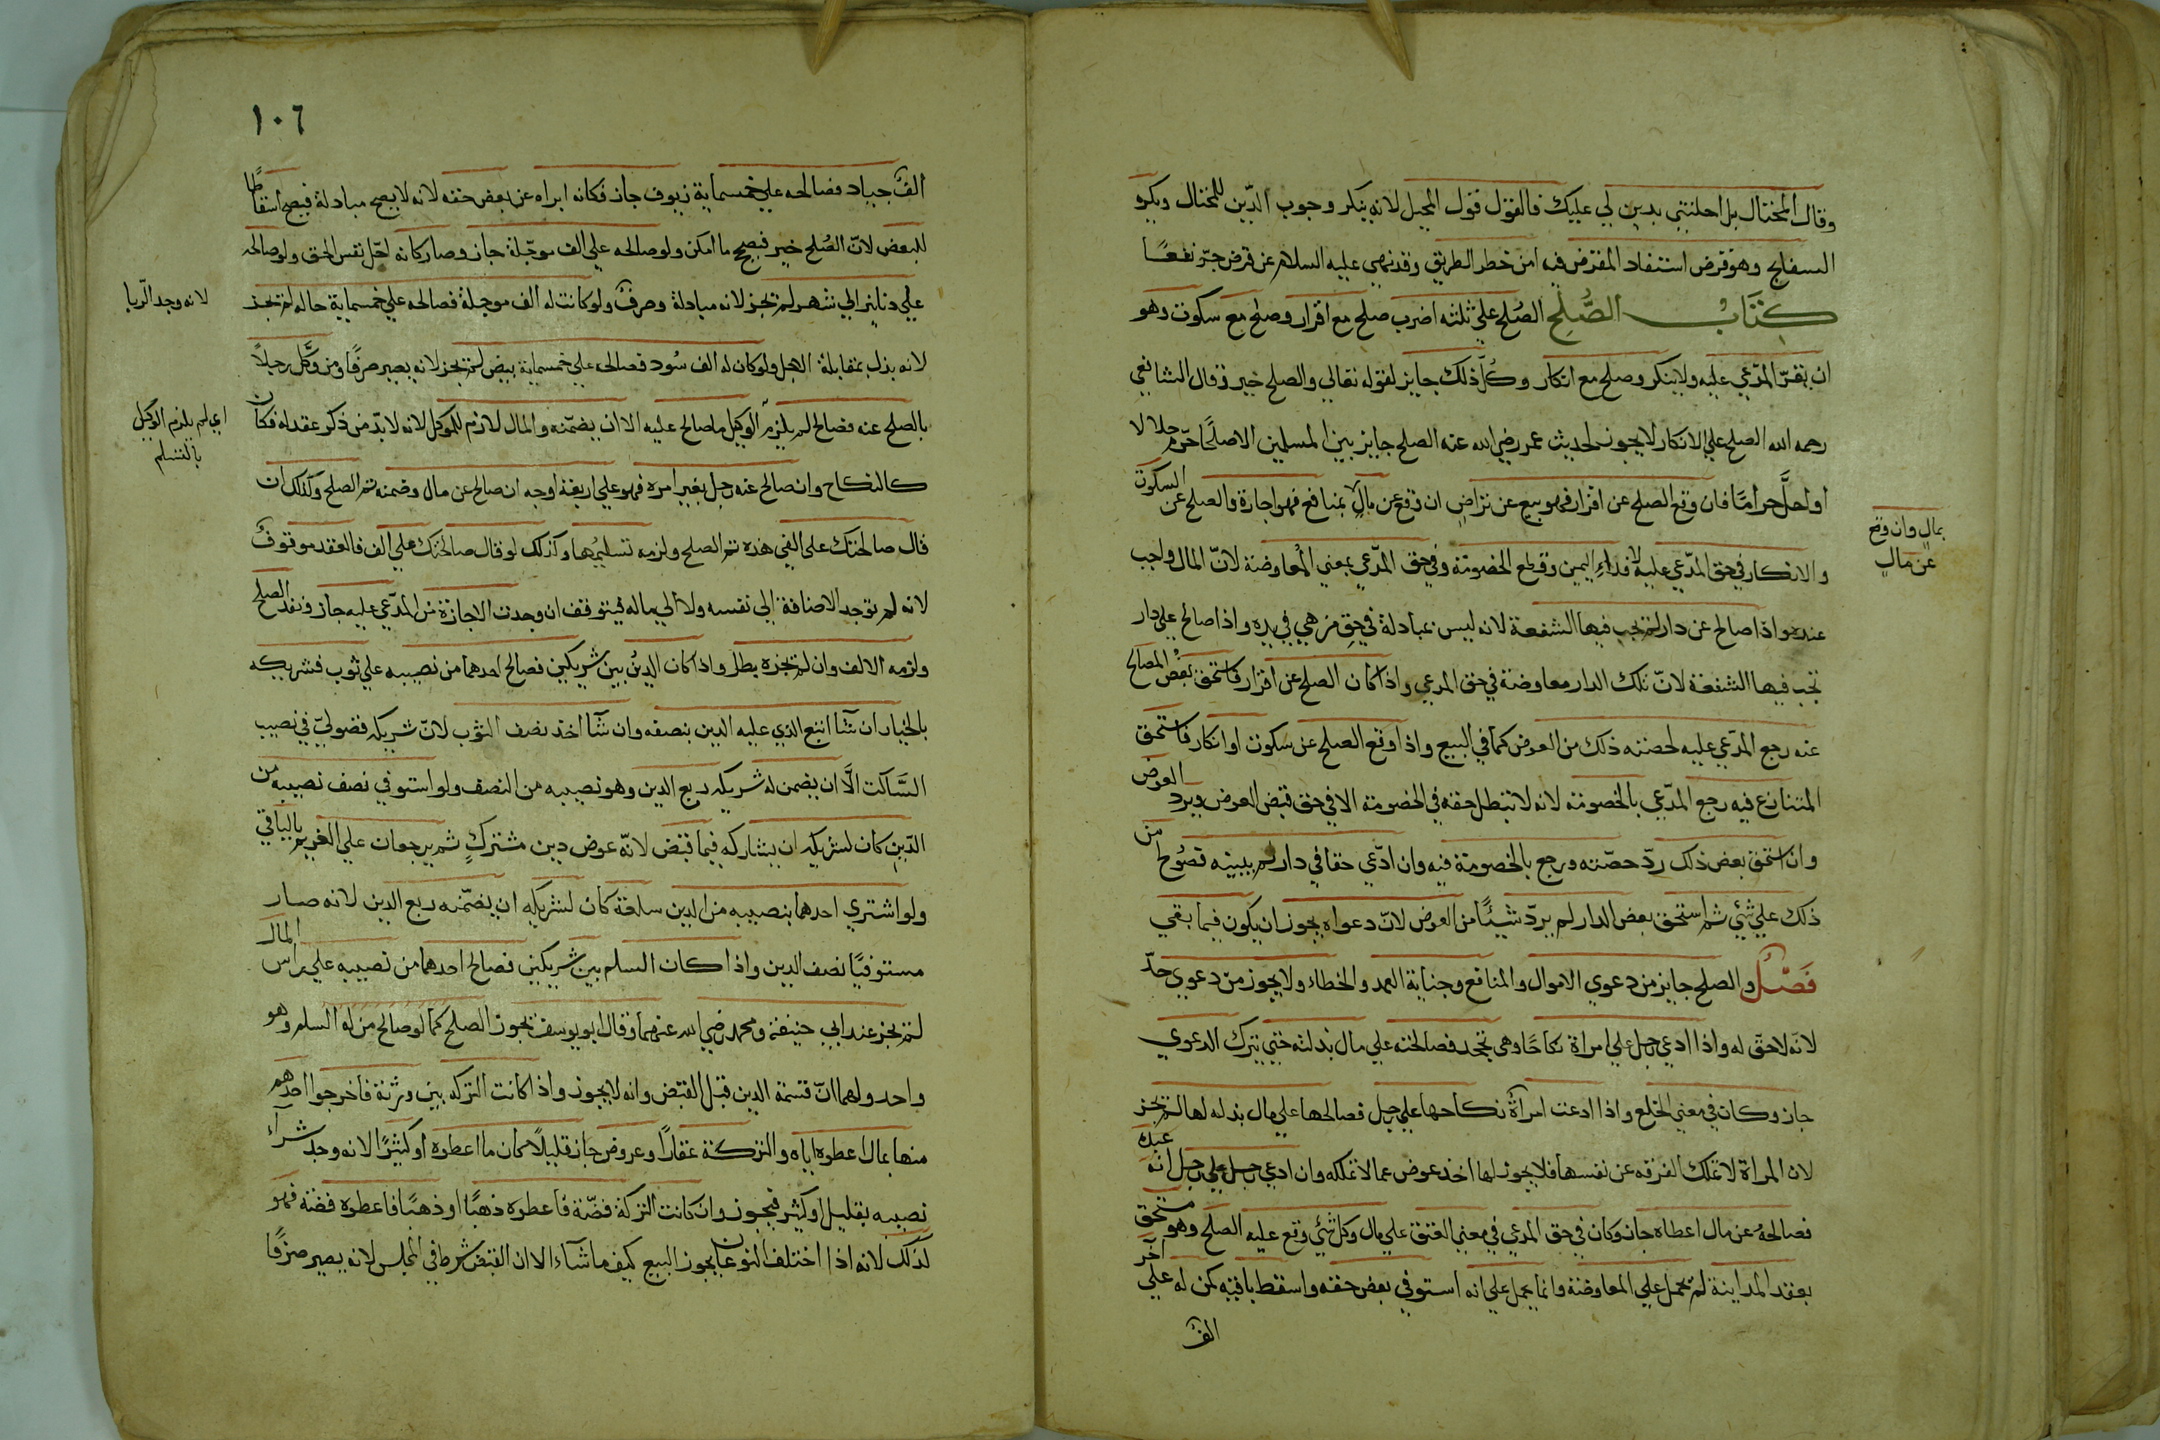 وقال المحتال بل احلتني بدين لي عليك فالقول قول المحيل لانه ينكر وجوب الدّين للمحتال ويكره
السفاتج وهو قرض استفاد المقرض فيه امن خطر الطريق وقد نهي عليه السلام عن قرض جرّ نفعًا
كتاب الصُلح الصُلح علي ثلثه اضرب صلح مع اقرار وصلح مع سكوت وهو
ان يقرّ المدّعي عليه ولا ينكر وصلح مع انكار وكُلّ ذلك جايز لقوله تعالي والصلح خير وقال الشافعي
رحمه الله الصلح علي الانكار لا يجوز لحديث عمر رضي الله عنه الصلح جايز بين المسلمين الا صلحًا حرّم حلالا
او احلَّ حرامًا فان وقع الصلح عن اقرار فهو بيع عن تراضٍ ان وقع عن مالٍ بمنافع فهو اجارة والصلح عن السكوت
بمالٍ وان وقع
عن مالٍ
والانكار في حق المدّعي عليه لافداءِ اليمين وقطع الخصومة وفي حق المدّعي بمعني المُعاوضة لانّ المال واجب
عنده واذا صالح عن دار لم تجب فيها الشفعة لانه ليس بمبادلة في حق من هي في يده واذا صالح علي دار
تجب فيها الشفعة لانّ تلك الدار معاوضة في حق المدعي واذا كان الصلح عن اقرار فاستحق بعض المصالح
عنه رجع المدّعي عليه لحصته ذلك من العوض كما في البيع واذا وقع الصلح عن سكوت او انكار فاستحق
المتنازع فيه رجع المدّعي بالخصومة لانه لا تبطل حقه في الخصومة الا في حق قبض العوض ويرد العوض
وان استحق بعض ذلك ردّ حصّته ورجع بالخصومة فيه وان ادّعي حقا في دار لم يبينه فصُوح من
ذلك علي شئٍ ثم استحق بعض الدار لم يردّ شيئًا من العوض لانّ دعواه يجوز ان يكون فيما بقي
فَصْل والصلح جايز من دعوي الاموال والمنافع وجناية العمد والخطاء ولا يجوز من دعوي حدّ
لانّه لا حقّ له واذا ادعي رجل علي امراة نكاحًا وهي تجحد فصالحته علي مال بذلته حتي يترك الدعوي
جاز وكان في معني الخلع واذا ادعت امراةٌ نكاحها علي رجل فصالحها علي مال بذله لها لم تجز
لان المراة لا تملك الفرقه عن نفسها فلا يجوز لها اخذ عوض عما لا تملكه وان ادعي رجل علي رجل انه عبده
فصالحهُ عن مال اعطاه جاز وكان في حق المدعي في معني العتق علي مال وكل شئٍ وقع عليه الصلح وهو مستحق
بعقد المداينة لم تحمل علي المعاوضة وانما يحمل علي انه استوفي بعض حقه واسقط باقيه كمن له علي آخر
الفٌ
١٠٦
الفٌ جياد فصالحه علي خمسماية زيوف جاز فكانه ابراه عن بعض حقه لانه لا يصح مبادلة فيصح اسقاطًا
للبعض لانّ الصُلح خير فيصح ما امكن ولو صالحه علي الف موجّلة جاز وصار كانه اجّل نفس الحق ولو صالحه
علي دنانير الي شهر لم تجز لانه مبادلة وصرفٌ ولو كانت له الف موجلةٌ فصالحه علي خمسماية حاله لم تجز
لانه وجد الرّبا
لانه بذل بمقابلة الاجل ولو كان له الف سُود فصالحه علي خمسماية بيض لم تجز لانه يصير صرفًا ومن وكّل رجلاً
بالصلح عنه فصالح لم يلزم الوكيل ما صالح عليه الا ان يضمّنه والمال لازم للموكل لانه لا بدّ من ذكر عقد له فكان
اي لم يلزم الوكيل
بالتسلم
كالنكاح وان صالح عنه رجل بغير امره فهو علي اربعة اوجه ان صالح عن مال وضمنه تم الصلح وكذلك ان
قال صالحتك علي الفي هذه تم الصلح ولزمه تسليمُها وكذلك لو قال صالحتك علي الف فالعقد موقوفٌ
لانه لم توجد الاضافة الي نفسه ولا الي ماله فيتوقف ان وجدت الاجازة من المدّعي عليه جاز ونفذ الصلح
ولزمه الالف وان لم تجزه بطل واذا كان الدينُ بين شريكين فصالح احدهما من نصيبه علي ثوب فشريكه
بالخيار ان شآ اتبع الذي عليه الدين بنصفه وان شآ اخذ نصف الثوب لانّ شريكه فضوليّ في نصيب
السَّاكت الَّا ان يضمن له شريكه ربع الدين وهو نصيبه من النصف ولو استوفي نصف نصيبه من
الدّين كان لشريكه ان يشاركه فيما قبض لانّه عوض دين مشتركٍ ثم يرجعان علي الغريم بالباقي
ولو اشتري احدهما بنصيبه من الدين سلعة كان لشريكه ان يضمّنه ربع الدين لانه صار
مستوفيًا نصف الدين واذا كان السلم بين شريكين فصالح احدهما من نصيبه علي راس المال
لم تجز عند ابي حنيفة ومحمد رضي الله عنهما وقال ابو يوسف يجوز الصلح كما لو صالح من له السلم وهو
واحد ولهما انّ قسمة الدين قبل القبض وانه لا يجوز واذا كانت التركه بين ورثة فاخرجوا احدهم
منها بمال اعطوه اياه والتركة عقارًا وعروض جاز قليلًا كان ما اعطوه او كثيرًا لانه وجد شرآء
نصيبه بقليل او كثير فيجوز وان كانت التركة فضّة فاعطوه ذهبًا او ذهبًا فاعطوه فضة فهو
كذلك لانه اذا اختلف النوعان يجوز البيع كيف ما شآء الا ان القبض شرط في المجلس لانه يصير صرفًا